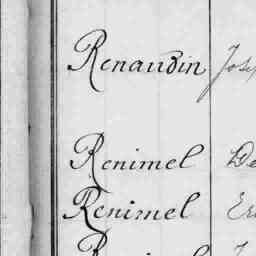 Renaudin Jose
Renimel De
Renimel Er